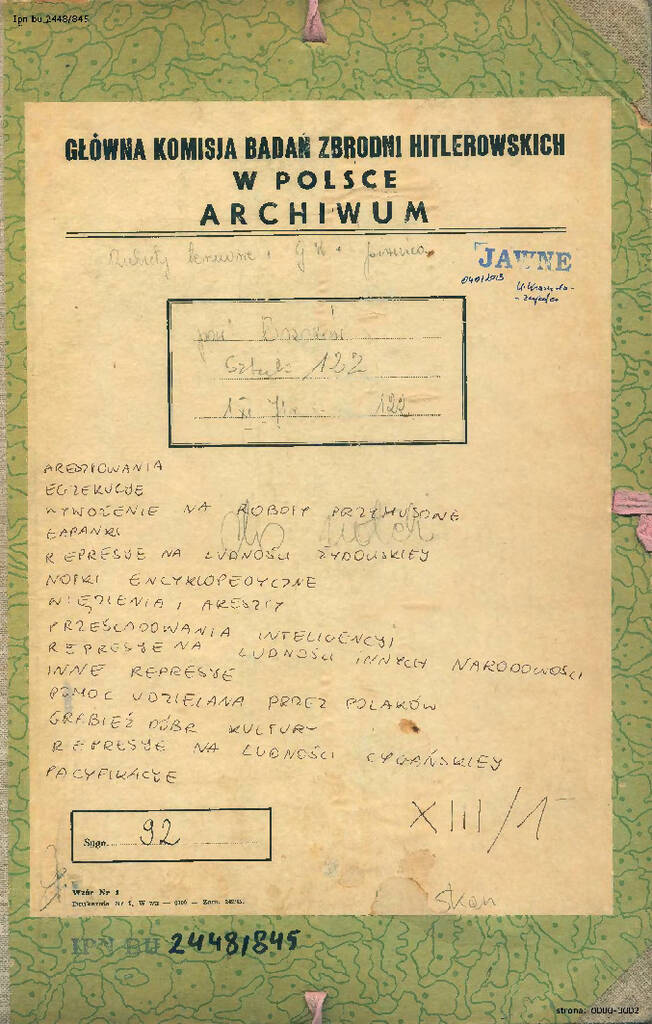 Ipn bu 2448/845
GŁÓWNA KOMISJA BADAŃ ZBRODNI HITLEROWSKICH
W POLSCE
ARCHIWUM
JAWNE
pow.
122
122
ARESZTOWANIA
EGZEKUCJE
WYWOŻENIE NA ROBOTY PRZYMUSOWE
ŁAPANKI
REPRESJE NA LUDNOŚCI ŻYDOWSKIEJ
NOTKI ENCYKLOPEDYCZNE
WIĘZIENIA I ARESZTY
PRZEŚLADOWANIA INTELIGENCJI
REPRESJE NA LUDNOŚCI INNYCH NARODOWOŚCI
INNE REPRESJE
POMOC UDZIELANA PRZEZ POLAKÓW
GRABIEŻ DÓBR KULTURY
REPRESJE NA LUDNOŚCI CYGAŃSKIEJ
PACYFIKACJE
XIII/1
Sygn. 92
Wzór Nr 1
Drukarnia Nr 1, W-wa
skan
IPN BU 2448/845
strona: 0000-0002